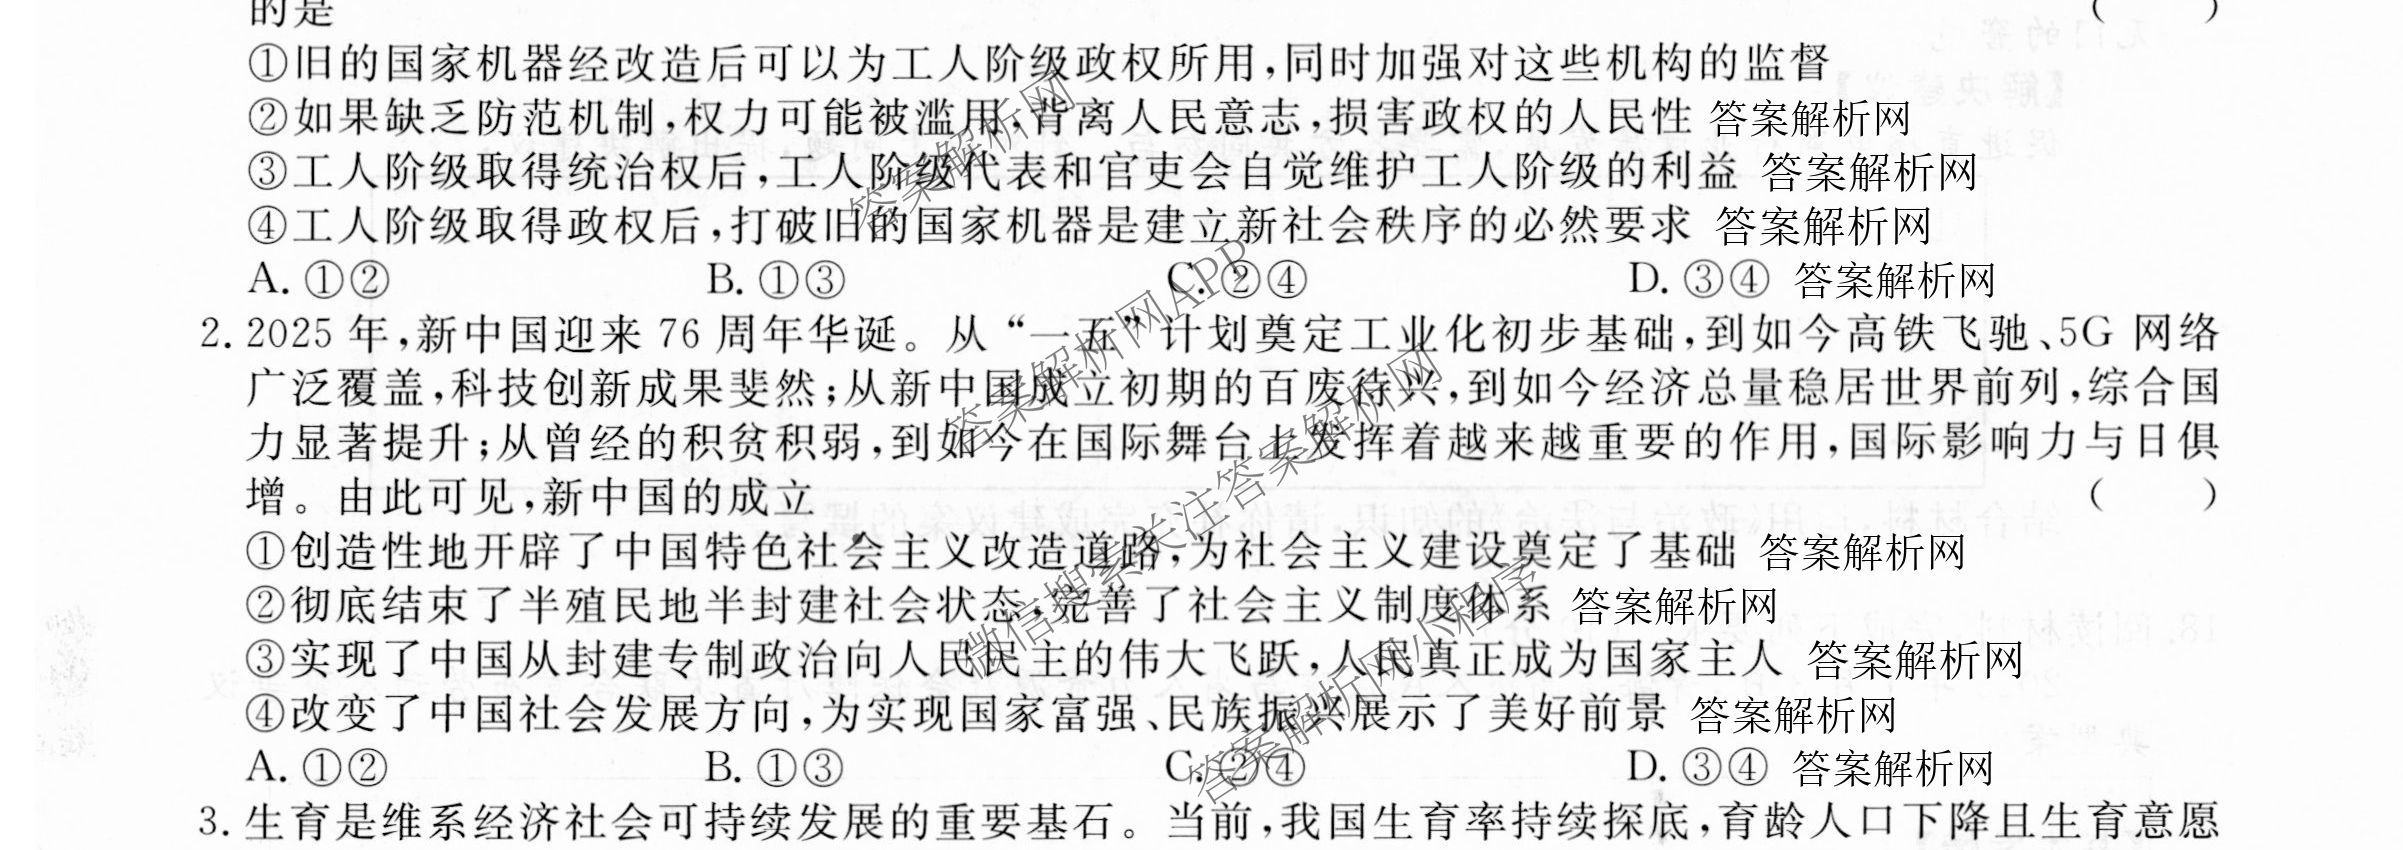 的是 ( )
①旧的国家机器经改造后可以为工人阶级政权所用,同时加强对这些机构的监督
②如果缺乏防范机制,权力可能被滥用,背离人民意志,损害政权的人民性 答案解析网
③工人阶级取得统治权后,工人阶级代表和官吏会自觉维护工人阶级的利益 答案解析网
④工人阶级取得政权后,打破旧的国家机器是建立新社会秩序的必然要求 答案解析网
A. ①② B. ①③ C. ②④ D. ③④ 答案解析网
2. 2025 年,新中国迎来 76 周年华诞。从“一五”计划奠定工业化初步基础,到如今高铁飞驰、5G 网络
广泛覆盖,科技创新成果斐然;从新中国成立初期的百废待兴,到如今经济总量稳居世界前列,综合国
力显著提升;从曾经的积贫积弱,到如今在国际舞台上发挥着越来越重要的作用,国际影响力与日俱
增。由此可见,新中国的成立 ( )
①创造性地开辟了中国特色社会主义改造道路,为社会主义建设奠定了基础 答案解析网
②彻底结束了半殖民地半封建社会状态,完善了社会主义制度体系 答案解析网
③实现了中国从封建专制政治向人民民主的伟大飞跃,人民真正成为国家主人 答案解析网
④改变了中国社会发展方向,为实现国家富强、民族振兴展示了美好前景 答案解析网
A. ①② B. ①③ C. ②④ D. ③④ 答案解析网
3. 生育是维系经济社会可持续发展的重要基石。当前,我国生育率持续探底,育龄人口下降且生育意愿
答案解析网
答案解析网APP
微信搜索关注答案解析网
答案解析网小程序